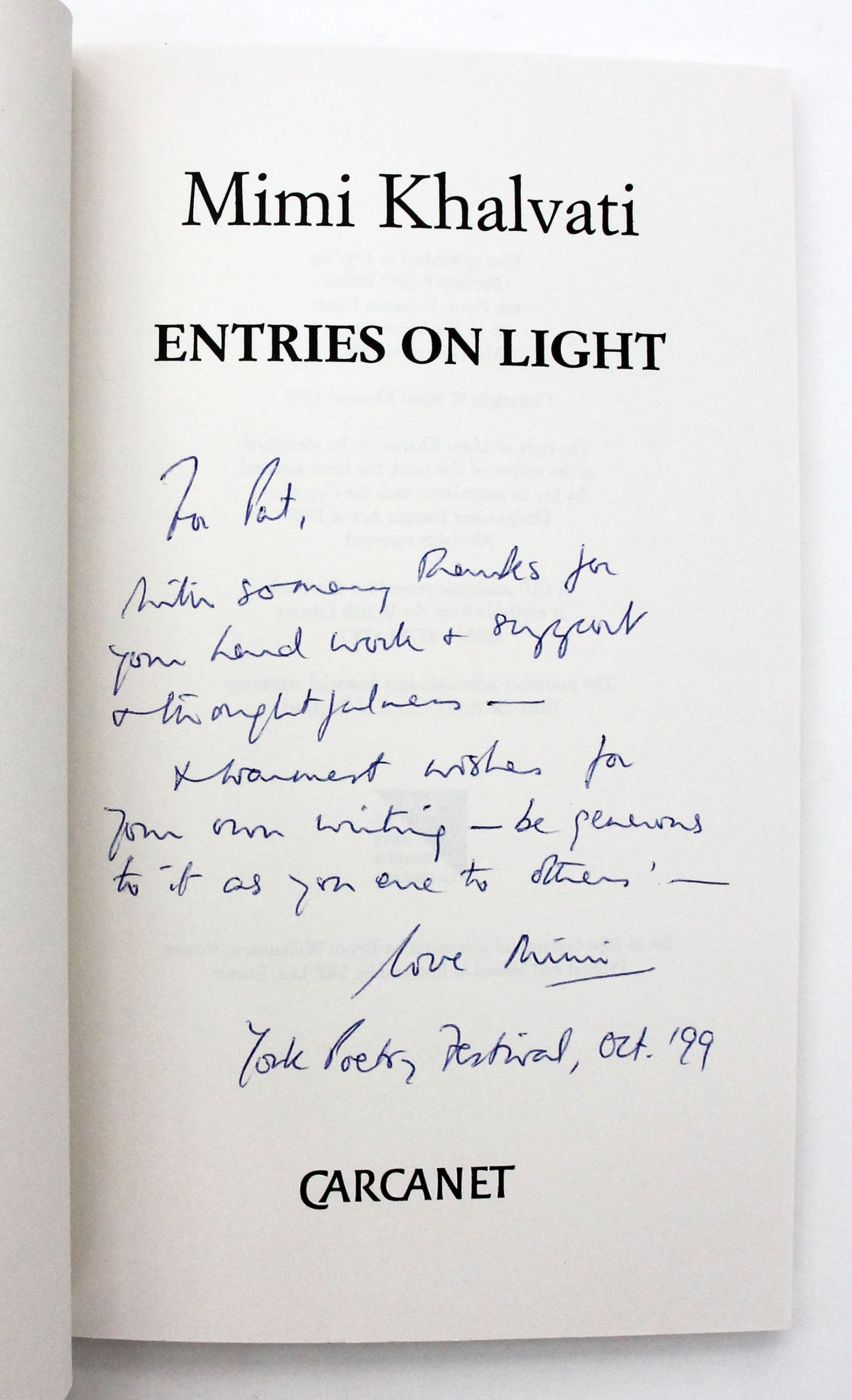 Mimi Khalvati
ENTRIES ON LIGHT
For Pat,
With so many thanks for
your hard work & support
& thoughtfulness —
& warmest wishes for
your own writing — be generous
to it as you are to others! —
love Mimi
York Poetry Festival, Oct. '99
CARCANET